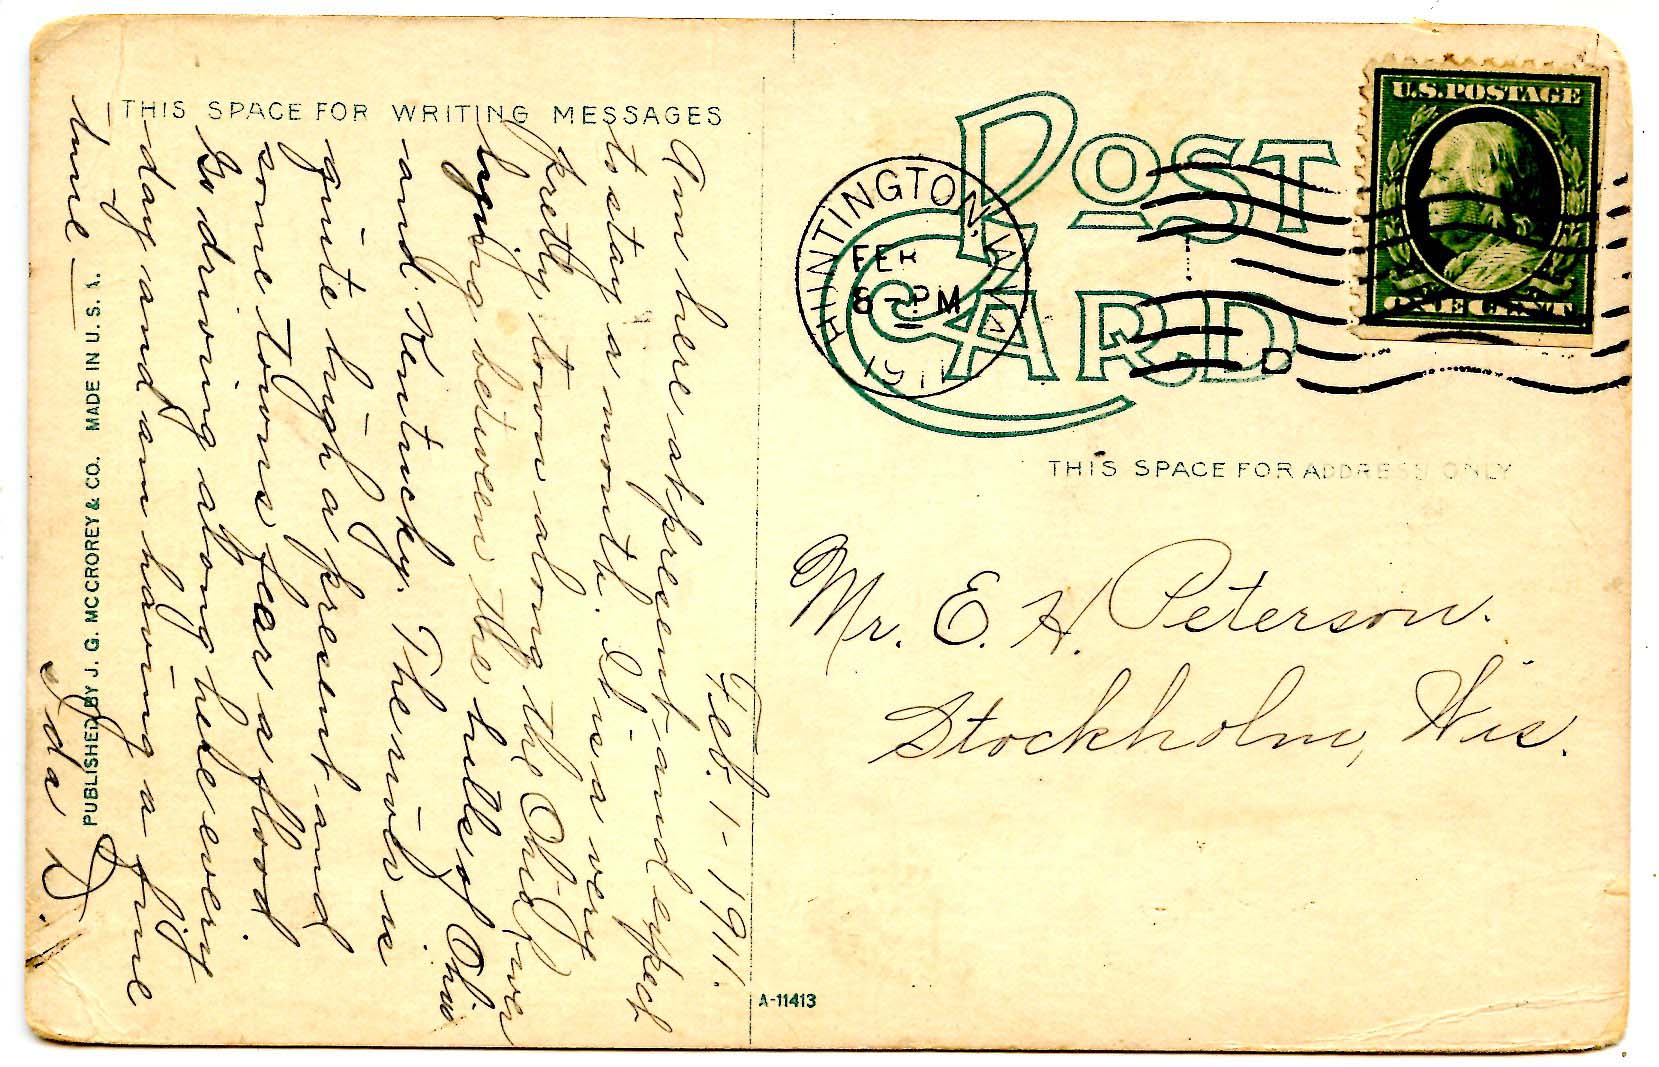 THIS SPACE FOR WRITING MESSAGES
Feb. 1 - 1911.
Am here at present and expect
to stay a month. It is a very
pretty town along the Ohio River
lying between the hills of Ohio
and Kentucky. The river is
quite high at present and
some towns fear a flood
Go driving along here every
day and am having a fine
time —
Ida D.
PUBLISHED BY J. G. MCCROREY & CO. MADE IN U. S. A.
POST CARD
HUNTINGTON, W.VA.
FEB
8 - PM
1911
D
U.S. POSTAGE
ONE CENT
THIS SPACE FOR ADDRESS ONLY
Mr. E. H. Peterson.
Stockholm, Wis.
A-11413